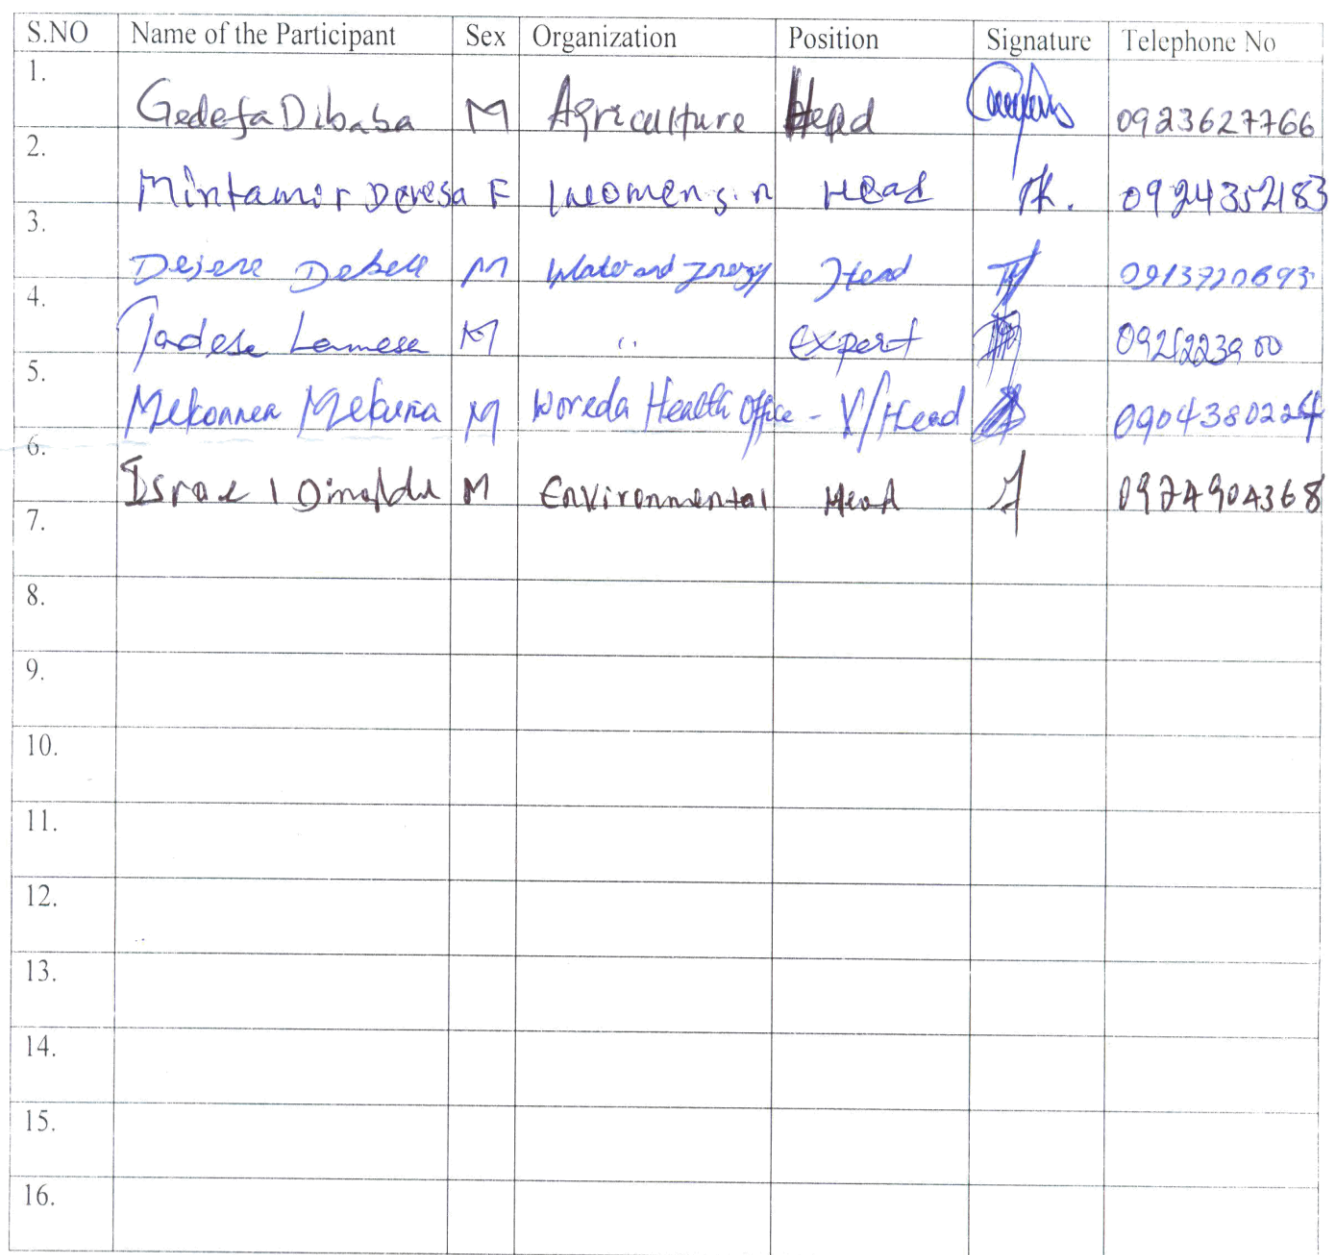 S.NO Name of the Participant Sex Organization Position Signature Telephone No
1. Gedefa Dibaba M Agriculture Head 0923627766
2. Mintamir Deresa F Women s. n Head 0924352183
3. Dejene Debele M Water and Energy Head
4. Tadese Lamesa M " expert
5. Mekonnen Mekuria M Woreda Health office - V/Head 0904380224
6. Israel M Environmental Head 0924904368
7.
8.
9.
10.
11.
12.
13.
14.
15.
16.